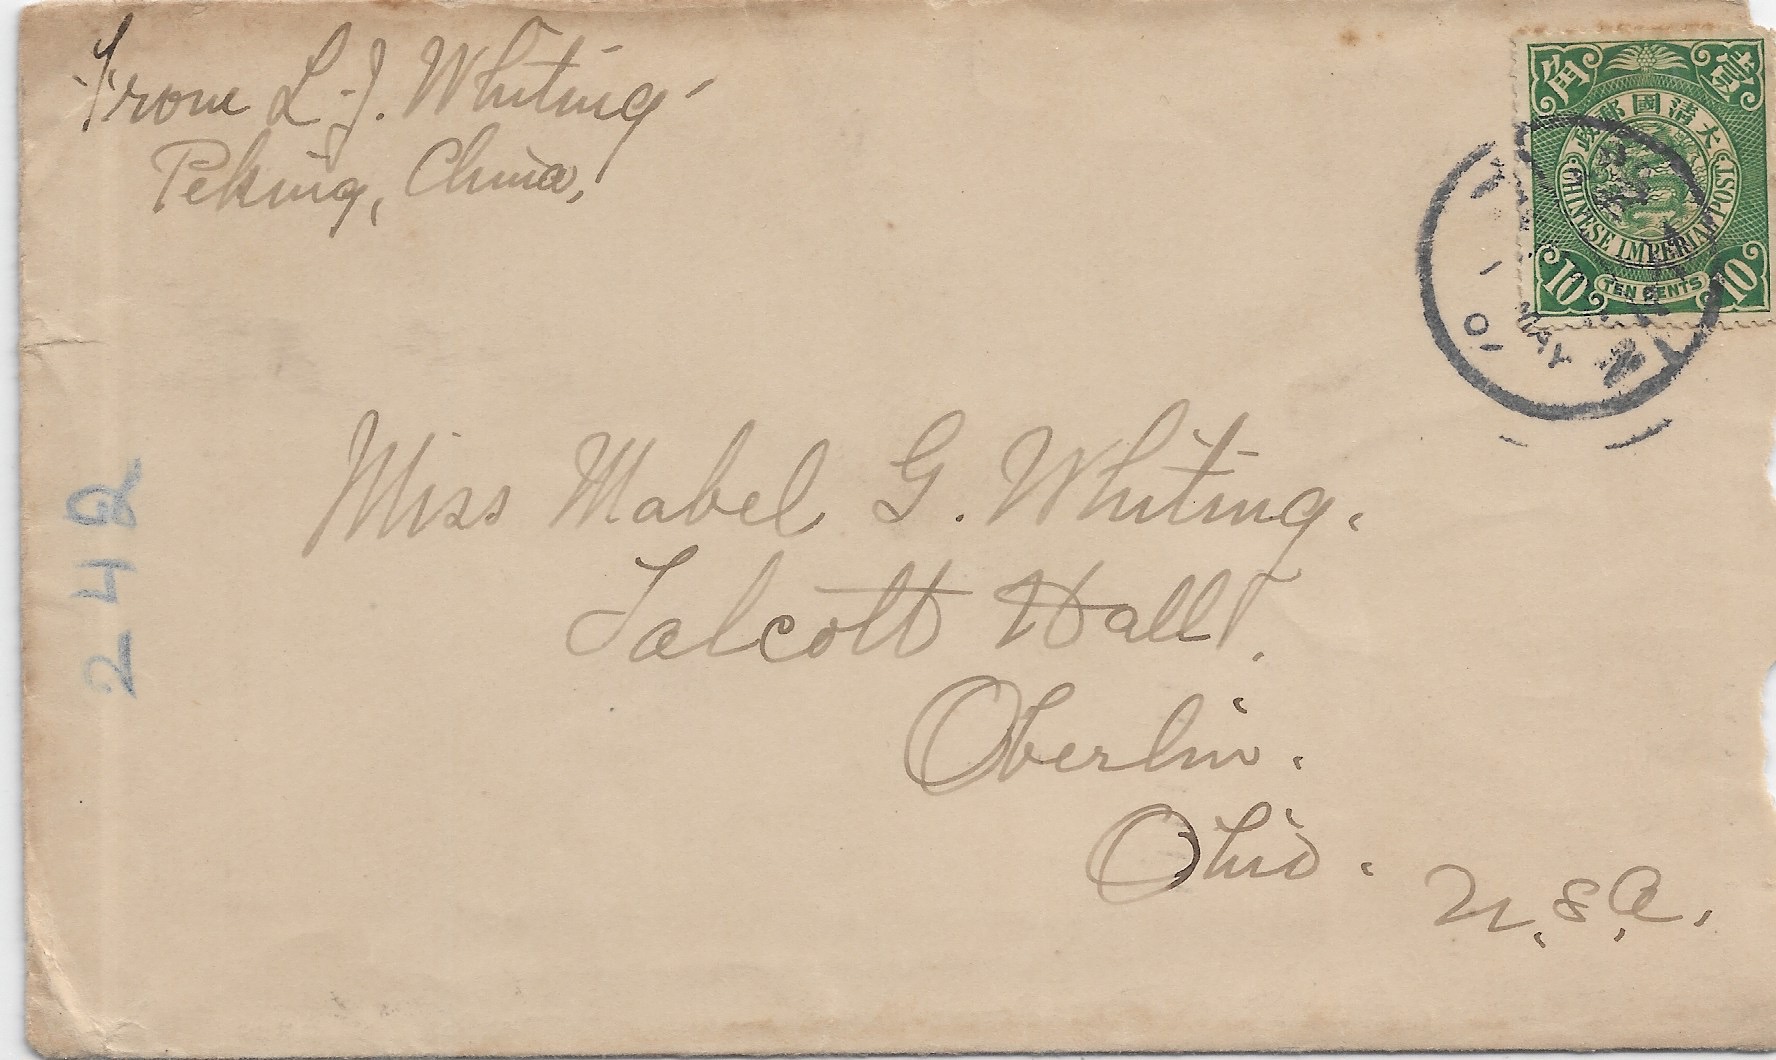 From L. J. Whiting
Peking, China,
角 壹
大清國郵政
CHINESE IMPERIAL POST
10 TEN CENTS 10
1 MAY 0
Miss Mabel G. Whiting.
Talcott Hall.
Oberlin.
Ohio.
U.S.A.
242